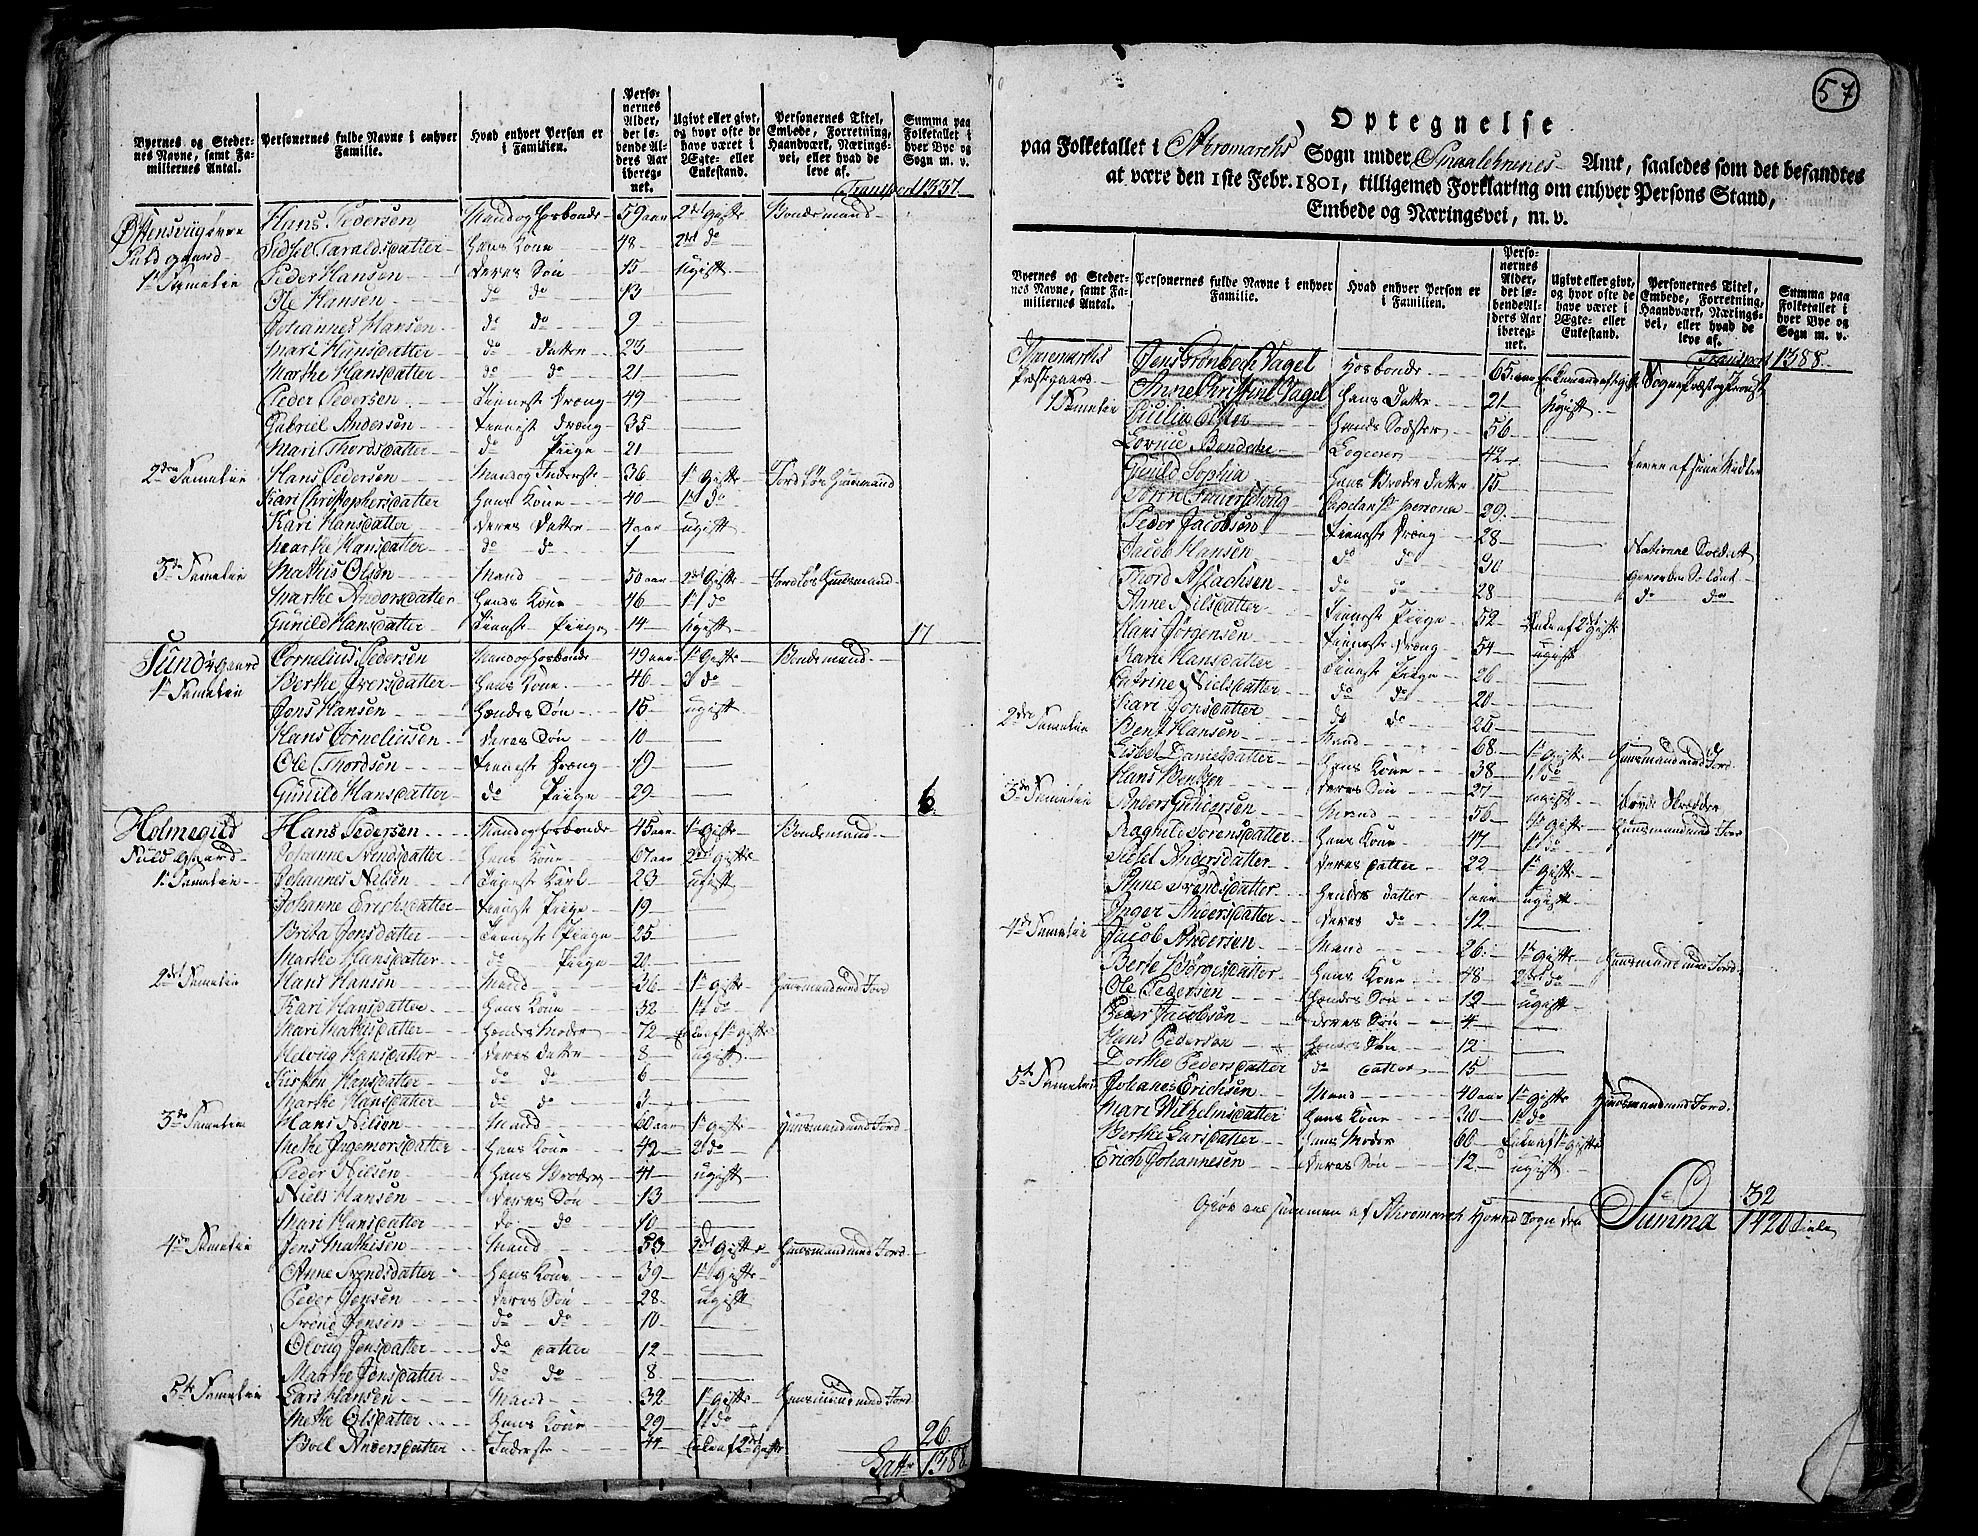 Byernes og Stedernes Navne, samt Familliernes Antal. | Personernes fulde Navne i enhver Familie. | Hvad enhver Person er i Familien. | Personernes Alder, det løbende Alders Aar iberegnet. | Ugivt eller givt, og hvor ofte de have været i Ægte- eller Enkestand. | Personernes Titel, Embede, Forretning, Haandværk, Næringsvei, eller hvad de leve af. | Summa paa Folketallet i hver Bye og Sogn m. v.
Transport 1337.
Hans Pedersen Mand og Hosbonde 59 aar 2det Gifte Bondemand
Fuldgaard Sidsel Taraldsdatter Hans Kone 48 2det do
1te Familie Peder Hansen Deres Søn 15 ugift
Ole Hansen do do 13
Johannes Hansen do do 9
Mari Hansdatter do Datter 23
Marthe Hansdatter do do 21
Peder Pedersen Tieneste Dreng 49
Gabriel Andersen Tieneste Dreng 35
Mari Thordsdatter do Piige 21
2den Familie Hans Pedersen Mand og Inderste 36 1te Gifte Jordløs Huusmand
Kari Christophersdatter Hans Kone 40 1te do
Kari Hansdatter Deres Datter 4 aar ugift
Marthe Hansdatter do do 1
3die Familie Mathis Olsøn Mand 50 aar 2det Gifte Jordløs Huusmand
Marthe Andersdatter Hands Kone 46 1te do
Gunild Hansdatter Tieneste Piige 14 ugift 17
Sundt Cornelius Pedersen Mand og Hosbonde 49 aar 1te Gifte Bondemand
1te Familie Berthe Iversdatter Hans Kone 46 2 do
Jens Hansen Hendes Søn 15 ugift
Hans Corneliusen Deres Søn 10
Ole Thordsen Tieneste Dreng 19
Gunild Hansdatter do Piige 29 6
Holmegild Hans Pedersen Mand og Hosbonde 45 aar 1te Gifte Bondemand
Fuld Gaard Johanne Svendsdatter Hans Kone 67 aar 2det Gifte
1te Familie Johannes Nilsen Tieneste Karl 23 ugift
Johanne Erichsdatter Tieneste Piige 19
Brita Jonsdatter Tieneste Piige 25
Marthe Hansdatter do Piige 20
2det Familie Hans Hansen Mand 36 1te Gifte Huusmand med Jord
Kari Hansdatter Hans Kone 32 1te do
Mari Mathisdatter Hendes Moder 72 Enke af 1te Gifte
Helvig Hansdatter Deres Datter 8 ugift
Kirsten Hansdatter do do 6
Marthe Hansdatter do do 3
3de Familie Hans Nilsen Mand 60 aar 1te Gifte Huusmand med Jord
Methe Ingemorsdatter Hans Kone 42 2 do
Peder Nilsen Hans Broder 41 ugift
Niels Hansen Deres Søn 13
Mari Hansdatter do do 10
4de Familie Jens Mathisen Mand 53 2det Gifte Huusmand med Jord
Anne Svendsdatter Hans Kone 39 1te Gifte
Peder Jensen Deres Søn 28 ugift
Svend Jensen do do 10
Oloug Jensdatter do datter 12
Marthe Jensdatter do do 8
5te Familie Lars Hansen Mand 32 1te Gifte Huusmand med Jord
Methe Olsdatter Hans Kone 29 1te do
Boel Andersdatter Inderste 44 Enke af 2det Gifte 26.
Latr 1388
57
Optegnelse
paa Folketallet i Aremarchs Sogn under Smaalehnenes Amt, saaledes som det befandtes
at være den 1ste Febr. 1801, tilligemed Forklaring om enhver Persons Stand,
Embede og Næringsvei, m. v.
Byernes og Stedernes Navne, samt Familiernes Antal. | Personernes fulde Navne i enhver Familie. | Hvad enhver Person er i Familien. | Personernes Alder, det løbende Alders Aar iberegnet. | Ugivt eller givt, og hvor ofte de have været i Ægte- eller Enkestand. | Personernes Titel, Embede, Forretning, Haandværk, Næringsvei, eller hvad de leve af. | Summa paa Folketallet i hver Bye og Sogn m. v.
Transport 1388.
Aremarchs Jens Grønbech Vagel Hosbonde 65 aar Sogne Præst og Provst
Præstgaard Anne Christine Vagel Hans Datter 21 ugift
1 Familie Hands Sødster 56
Bendeke Logerer 42
Gunild Sophia Hans Broder Datter 15
Capelan 29
Peder Jacobsen Tieneste Dreng 28 National Soldat
Jacob Hansen do do 30 Soldat
Thord Aslachsen do do 28 do do
Anne Nilsdatter Tieneste Piige 52 Enke af 2det Gifte
Hans Jørgensen Tieneste Dreng 54 ugift
Karie Hansdatter Tieneste Piige 26
Catrine Nielsdatter do do 20
Kari Jonsdatter do do 25
2dre Familie Bent Hansen Mand 68 1te Gifte Huusmand med Jord
Lisbet Danielsdatter Hans Kone 38 1te do
Hans Bentsen Deres Søn 27 ugift Skrædder
3de Familie Anders Gundersen Mand 56 1te Gifte Huusmand med Jord
Raghile Sørensdatter Hans Kone 47 1te do
Sidsel Andersdatter Deres datter 22 1te Gifte
Anne Svendsdatter Hendes datter 1 aar ugift
Inger Andersdatter Deres do 12
4de Familie Jacob Andersen Mand 26 1te Gifte Huusmand med Jord
Berte Børgesdatter Hans Kone 48 2det do
Ole Pedersen Hendes Søn 12 ugift
Peder Jacobsøn Deres Søn 4
Hans Pedersen Hendes Søn 12
Dorthe Pedersdatter do datter 15
5te Familie Johanes Erichsen Mand 40 aar 1te Gifte Huusmand med Jord
Mari Wilhelmsdatter Hans Kone 30 1te do
Berthe Larsdatter Hans Moder 60 Enke af 1te Gifte
Erich Johannesen Deres Søn 12 ugift
32
Giør al summen af Aremarch Hoved Sogn den Summa 1420 Siele